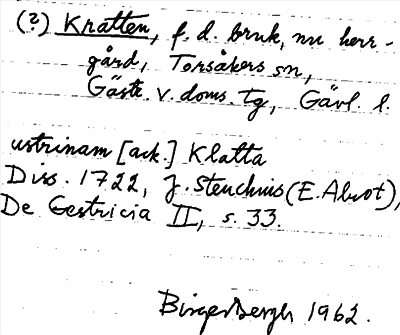 (?) Kratten, f. d. bruk, nu herr-
gård, Torsåkers sn,
Gästr. v. doms. tg, Gävl. l.
ustrinam [ack.] Klatta
Diss. 1722, J. Stenchius (E. Alvot),
De Gestricia II, s. 33.
Birger Bergh 1962.